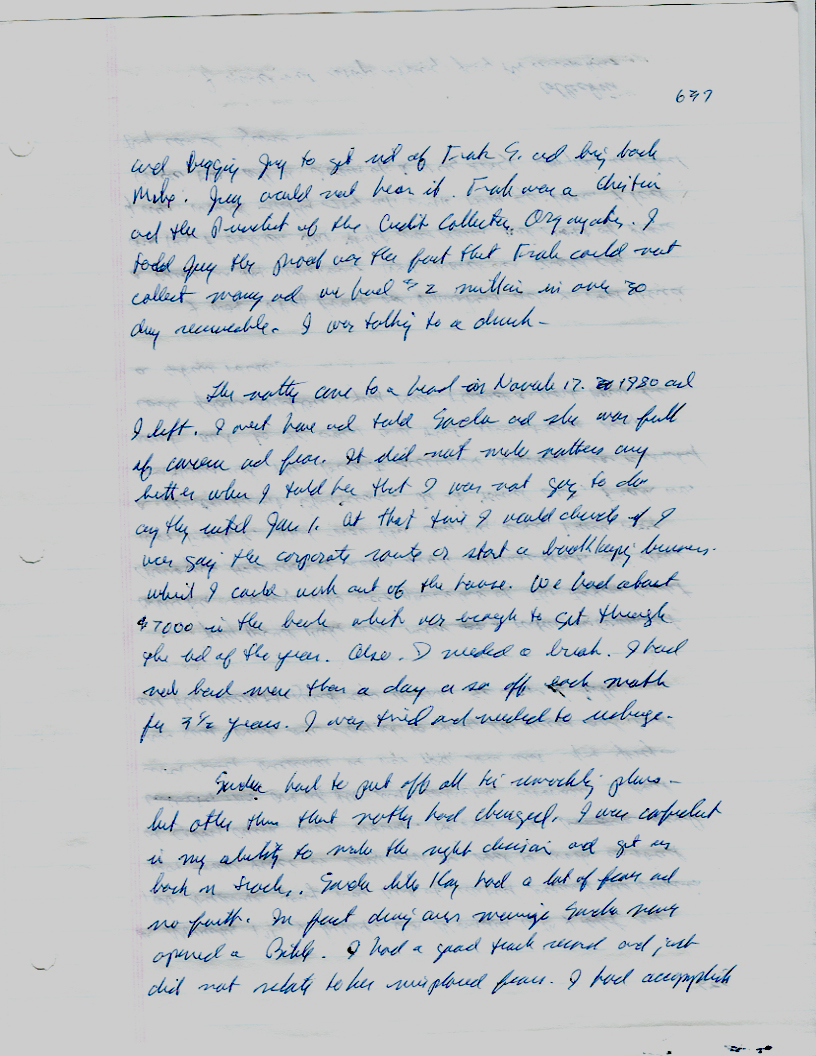 637
and begging Jerry to get rid of Frank G. and bring back
Mike. Jerry would not hear it. Frank was a Christian
and the President of the Credit Collection Organization. I
told Jerry the proof was the fact that Frank could not
collect money and we had $2 million in over 30
day receivable. I was talking to a
The matter came to a head on November 17. 1980 and
I left. I went home and told and she was full
of concern and fear. It did not make matters any
better when I told her that I was not going to do
anything until Jan 1. At that time I would decide if I
was going the corporate route or start a bookkeeping business
which I could work out of the house. We had about
$7000 in the bank which was enough to get through
the end of the year. Also. I needed a break. I had
not had more than a day or so off each month
for 3 1/2 years. I was tired and needed to
had to put off all her remodeling plans -
but other than that nothing had changed. I was confident
in my ability to make the right decision and get us
back on track. like Kay had a lot of fear and
no faith. In fact during our marriage never
opened a Bible. I had a good track record and just
did not relate to her misplaced fears. I had accomplish